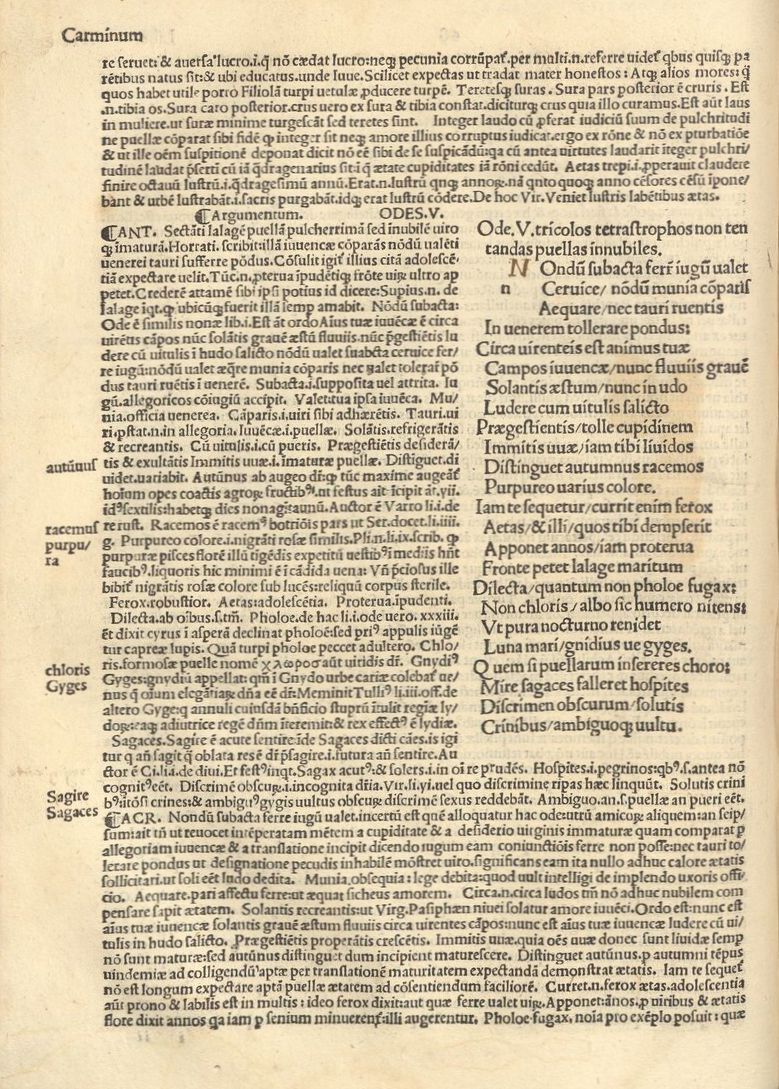 Carminum
re seruet: & auersa lucro.i.q̃ nõ cædat lucro:neq; pecunia corrũpat̃.per multi.n.referre uidet̃ qbus quisq; pa
rẽtibus natus sit:& ubi educatus.unde Iuue. Scilicet expectas ut tradat mater honestos: Atq; alios mores: q̃
quos habet utile porro Filiolã turpi uetulæ ꝓducere turpẽ. Teretesq; suras. Sura pars posterior ẽ cruris. Est
.n.tibia os. Sura caro posterior.crus uero ex sura & tibia constat.diciturq; crus quia illo curamus. Est aũt laus
in muliere.ut suræ minime turgescãt sed teretes sint. Integer laudo cũ ꝓferat iudiciũ suum de pulchritudi
ne puellæ cõparat sibi fidẽ q; integer sit neq; amore illius corruptus iudicat.ergo ex rõne & nõ ex pturbatiõe
& ut ille oẽm suspitionẽ deponat dicit nõ eẽ sibi de se suspicãdũ:qa cũ antea uirtutes laudarit iteger pulchri/
tudinẽ laudat p̃serti cũ iã q̃dragenarius sit:ĩ q̃ ætate cupiditates iã rõni cedũt. Aetas trepi.i.ꝓperauit claudere
finire octauũ lustrũ.i.q̃dragesimũ annũ. Erat.n.lustrũ qnq; annoꝝ.nã qnto quoq; anno cẽsores cẽsũ ĩpone/
bãt & urbẽ lustrabãt.i.sacris purgabãt.idq; erat lustrũ cõdere. De hoc Vir. Veniet lustris labẽtibus ætas.
¶Argumentum. ODES.V.
¶ANT. Sectãti lalagẽ puellã pulcherrimã sed ĩnubilẽ uiro
q; ĩmaturã. Horrati. scribit:illã iuuencæ cõparãs nõdũ ualẽti
uenerei tauri sufferre põdus. Cõsulit igit̃ illius citã adolescẽ
tiã expectare uelit. Tũc.n.ꝓterua ĩpudẽtiq; frõte uiꝝ ultro ap
petet. Crederẽ attamẽ sibi ipsi potius id dicere: Supius.n.de
lalage iqt.q; ubicũq; fuerit illã semp amabit. Nõdũ subacta:
Ode ẽ similis nonæ lib.i.Est ãt ordo Aĩus tuæ iuuẽcæ ẽ circa
uirẽtis cãpos nũc solãtis grauẽ æstũ fluuiis.nũc p̃gestiẽtis lu
dere cũ uitulis ĩ hudo salicto nõdũ ualet suabcta ceruice fer/
re iugũ:nõdũ ualet æqre munia cõparis nec ualet tolerare põ
dus tauri ruẽtis ĩ uenerẽ. Subacta.i.supposita uel attrita. Iu
gũ.allegoricos cõiugiũ accipit. Valet.tua ipsa iuuẽca. Mu/
nia.officia uenerea. Cãparis.i.uiri sibi adhærẽtis. Tauri.ui
ri.pstat.n.in allegoria. Iuuẽcæ.i.puellæ. Solãtis.refrigerãtis
& recreantis. Cũ uitulis.i.cũ pueris. Prægestiẽtis desiderã/
tis & exultãtis Immitis uuæ.i.ĩmaturæ puellæ. Distiguet.di
uidet.uariabit. Autũnus ab augeo dr̃:q; tũc maxime augeãt
hoĩum opes coactis agroꝝ fructibꝰ.ut festus ait ĩcipit ãt.vii.
idꝰ sextilis:habetq; dies nonagĩtaunũ. Auctor ẽ Varro li.i.de
re rust. Racemos ẽ racemꝰ botriõis pars ut Ser.docet.li.iiii.
g. Purpureo colore.i.nigrãti rosæ similis. Pli.n.li.ix.scrib.q;
purpuræ pisces florẽ illũ tigẽdis expetitũ uestibꝰ ĩ mediis hñt
faucibꝰ.liquoris hic minimi ẽ ĩ cãdida uena: Vñ p̃ciosus ille
bibit̃ nigrãtis rosæ colore sub lucẽs:reliquũ corpus sterile.
Ferox.robustior. Aetas:adolescẽtia. Proterua.ĩpudenti.
Dilecta.ab oĩbus.s.tm̃. Pholoe.de hac li.i.ode uero.xxxiii.
ẽt dixit cyrus ĩ asperã declinat pholoẽ:sed priꝰ appulis iũgẽ
tur capreæ lupis. Quã turpi pholoe peccet adultero. Chlo/
ris.formosæ puellæ nomẽ χλωροσ aũt uiridis dr̃. Gnydiꝰ
Gyges:gnydiũ appellat: qm̃ ĩ Gnydo urbe cariæ colebat̃ ue/
nus q̃ oĩum elegãtiaꝝ dñã eẽ dr̃:Meminit Tulliꝰ li.iii.off.de
altero Gyge:q annuli cuiusdã bñficio stuprũ ĩtulit regiæ ly/
doꝝ:eaq; adiutrice regẽ dñm ĩteremit:& rex effectꝰ ẽ lydiæ.
Sagaces. Sagire ẽ acute sentire:ĩde Sagaces dicti cães.is igi
tur q an̄ sagit q̃ oblata res ẽ dr̃ p̃sagire.i.futura an̄ sentire. Au
ctor ẽ Ci.li.i.de diui. Et festꝰ inqt. Sagax acutꝰ:& solers.i.in oĩ re prudẽs. Hospites.i.pegrinos:qbꝰ.s.antea nõ
cognitꝰ eẽt. Discrimẽ obscuꝝ.i.incognita dr̃ia.Vir.li.yi.uel quo discrimine ripas hæc linquũt. Solutis crini
bꝰ.ĩtõsi crines:& ambiguꝰ gygis uultus obscuꝝ discrimẽ sexus reddebãt. Ambiguo.an.s.puellæ an pueri eẽt.
¶ACR. Nondũ subacta ferre iugũ ualet.incertũ est quẽ alloquatur hac ode:utrũ amicoꝝ aliquem:an seip/
sum:ait tñ ut reuocet intẽperatam mẽtem a cupiditate & a desiderio uirginis immaturæ quam comparat p
allegoriam iuuencæ & a translatione incipit dicendo iugum eam coniunctiõis ferre non posse:nec tauri to/
lerare pondus ut designatione pecudis inhabilẽ mõstret uiro.significans eam ita nullo adhuc calore ætatis
sollicitari.ut soli eẽt ludo dedita. Munia.obsequia: lege debita:quod uult intelligi de implendo uxoris offi/
cio. Aequare.pari affectu ferre:ut æquat sicheus amorem. Circa.n.circa ludos tm̃ nõ adhuc nubilem com
pensare sapit ætatem. Solantis recreantis:ut Virg. Pasiphæn niuei solatur amore iuuẽci. Ordo est:nunc est
aius tuæ iuuencæ solantis grauẽ æstum fluuiis circa uirentes cãpos:nunc est aĩus tuæ iuuencæ ludere cũ ui/
tulis in hudo salicto. Prægestiẽtis properãtis crescẽtis. Immitis uuæ.quia oẽs uuæ donec sunt liuidæ semp
nõ sunt maturæ:sed autũnus distinguet dum incipient maturescere. Distinguet autũnus.p autumni tẽpus
uindemiæ ad colligendũ aptæ per translationẽ maturitatem expectandã demonstrat ætatis. Iam te sequet̃
nõ est longum expectare aptã puellæ ætatem ad cõsentiendum faciliorẽ. Curret.n.ferox ætas.adolescentia
aũt prono & labilis est in multis: ideo ferox dixit:aut quæ ferre ualet uiꝝ. Apponet:ãnos.p uiribus & ætatis
flore dixit annos qa iam p senium minuerent̃:illi augerentur. Pholoe fugax.noĩa pro exẽplo posuit: quæ
Ode.V.tricolos tetrastrophos non ten
tandas puellas innubiles.
N Ondũ subacta ferr̃ iugũ ualet
n Ceruice/ nõdũ munia cõparis
Aequare/nec tauri ruentis
In uenerem tollerare pondus:
Circa uirenteis est animus tuæ
Campos iuuencæ/nunc fluuiis grauẽ
Solantis æstum/nunc in udo
Ludere cum uitulis salicto
Prægestientis/tolle cupidinem
Immitis uuæ/iam tibi liuidos
Distinguet autumnus racemos
Purpureo uarius colore.
Iam te sequetur/currit enim ferox
Aetas/& illi/quos tibi dempserit
Apponet annos/iam proterua
Fronte petet lalage maritum
Dilecta/quantum non pholoe fugax:
Non chloris/albo sic humero nitens:
Vt pura nocturno renidet
Luna mari/gnidius ue gyges.
Quem si puellarum insereres choro:
Mire sagaces falleret hospites
Discrimen obscurum/solutis
Crinibus/ambiguoq; uultu.
autũnus
racemus
purpu/
ra
chloris
Gyges
Sagire
Sagaces